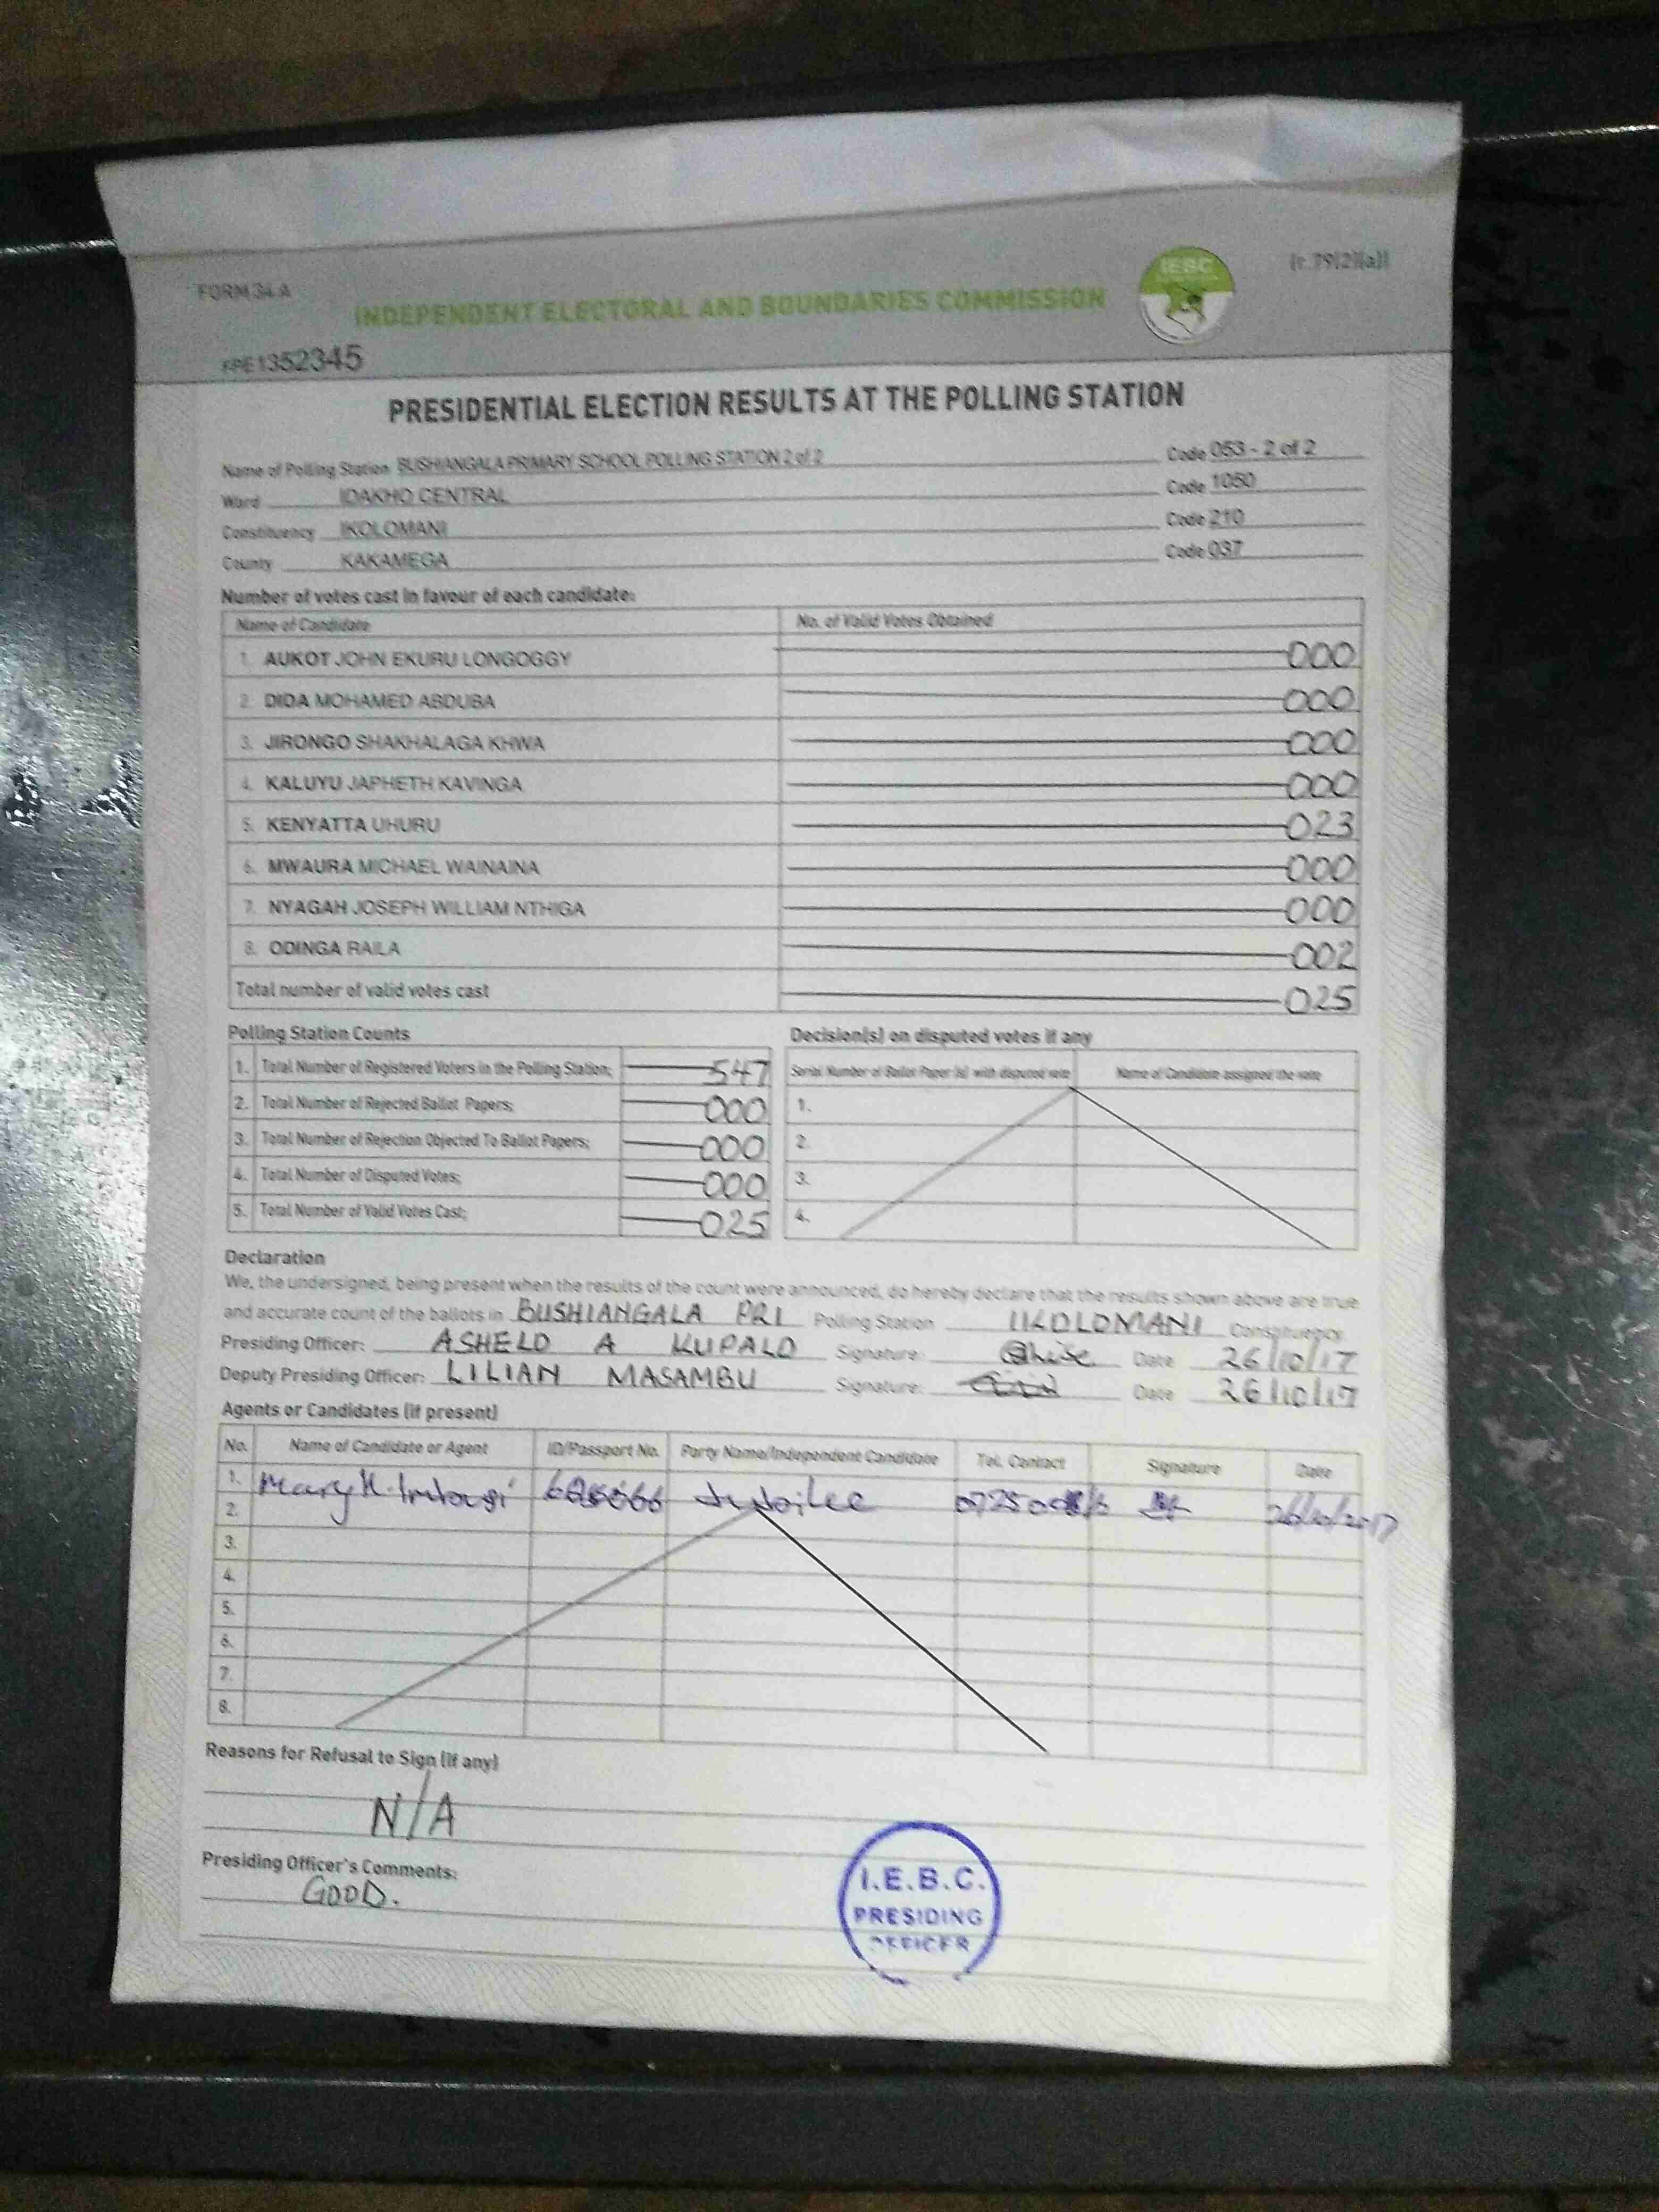 FORM 34 A
(r.79(2)(a))
IEBC
INDEPENDENT ELECTORAL AND BOUNDARIES COMMISSION
FPE1352345
PRESIDENTIAL ELECTION RESULTS AT THE POLLING STATION
Name of Polling Station BUSHIANGALA PRIMARY SCHOOL POLLING STATION 2 of 2 Code 053 - 2 of 2
Ward IDAKHO CENTRAL Code 1050
Constituency IKOLOMANI Code 210
County KAKAMEGA Code 037
Number of votes cast in favour of each candidate:
Name of Candidate No. of Valid Votes Obtained
1. AUKOT JOHN EKURU LONGOGGY 000
2. DIDA MOHAMED ABDUBA 000
3. JIRONGO SHAKHALAGA KHWA 000
4. KALUYU JAPHETH KAVINGA 000
5. KENYATTA UHURU 023
6. MWAURA MICHAEL WAINAINA 000
7. NYAGAH JOSEPH WILLIAM NTHIGA 000
8. ODINGA RAILA 002
Total number of valid votes cast 025
Polling Station Counts
1. Total Number of Registered Voters in the Polling Station; 547
2. Total Number of Rejected Ballot Papers; 000
3. Total Number of Rejection Objected To Ballot Papers; 000
4. Total Number of Disputed Votes; 000
5. Total Number of Valid Votes Cast; 025
Decision(s) on disputed votes if any
Serial Number of Ballot Paper (s) with disputed vote Name of Candidate assigned the vote
1.
2.
3.
4.
Declaration
We, the undersigned, being present when the results of the count were announced, do hereby declare that the results shown above are true
and accurate count of the ballots in BUSHIANGALA PRI Polling Station IKOLOMANI Constituency
Presiding Officer: ASHELD A KUPALO Signature: Date 26/10/17
Deputy Presiding Officer: LILIAN MASAMBU Signature: Date 26/10/17
Agents or Candidates (if present)
No. Name of Candidate or Agent ID/Passport No. Party Name/Independent Candidate Tel. Contact Signature Date
1. Mary Jubilee 26/10/2017
2.
3.
4.
5.
6.
7.
8.
Reasons for Refusal to Sign (if any)
N/A
Presiding Officer's Comments:
GOOD.
I.E.B.C.
PRESIDING
OFFICER